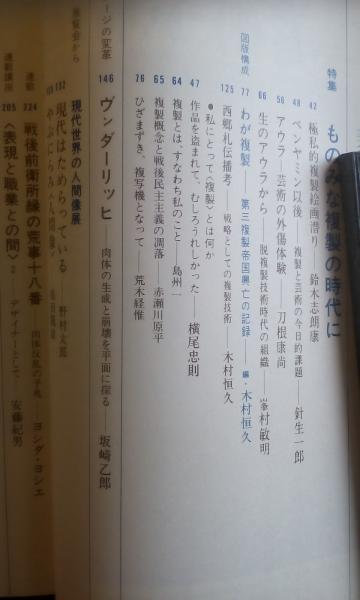 特集
もののみな複製の時代に
42 極私的複製絵画潜り――鈴木志朗康
48 ベンヤミン以後――複製と芸術の今日的課題――針生一郎
56 アウラ/芸術の外傷体験――刀根康尚
66 生のアウラから――脱複製技術時代の組織――峯村敏明
図版構成
77 わが複製 第三複製帝国興亡の記録――編・木村恒久
125 西郷札伝播考――戦略としての複製技術――木村恒久
●私にとって〈複製〉とは何か
47 作品を盗まれて、むしろうれしかった――横尾忠則
64 複製とは、すなわち私のこと――島州一
65 複製概念と戦後民主主義の凋落――赤瀬川原平
76 ひざまずき、複写機となって――荒木経惟
ージの変革
146 ヴンダーリッヒ――肉体の生成と崩壊を平面に探る――坂崎乙郎
展覧会から
現代世界の人間像展
132 現代はためらっている――野村太郎
やぶにらみ〈人間像〉
連載
224 戦後前衛所縁の荒事十八番――ヨシダ・ヨシエ
連載講座
205 〈表現と職業との間〉2 デザイナーとして――安藤紀男